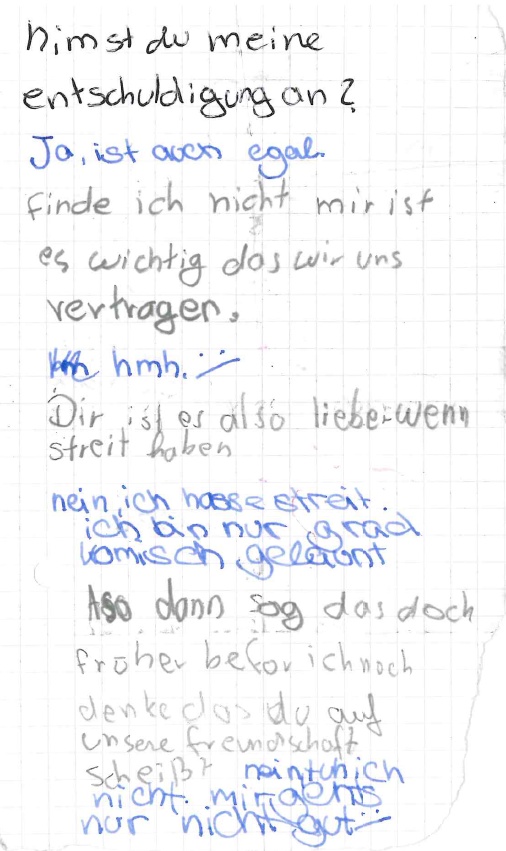 Nimst du meine
entschuldigung an?
Ja, ist auch egal.
finde ich nicht mir ist
es wichtig das wir uns
vertragen.
hmh. :-/
Dir ist es also lieber wenn
streit haben
nein, ich hasse streit.
ich bin nur grad
komisch gelaunt
Aso dann sag das doch
früher befor ich noch
denke das du auf
unsere freundschaft
scheißt nein tuh ich
nicht. mir gehts
nur nicht gut :-/